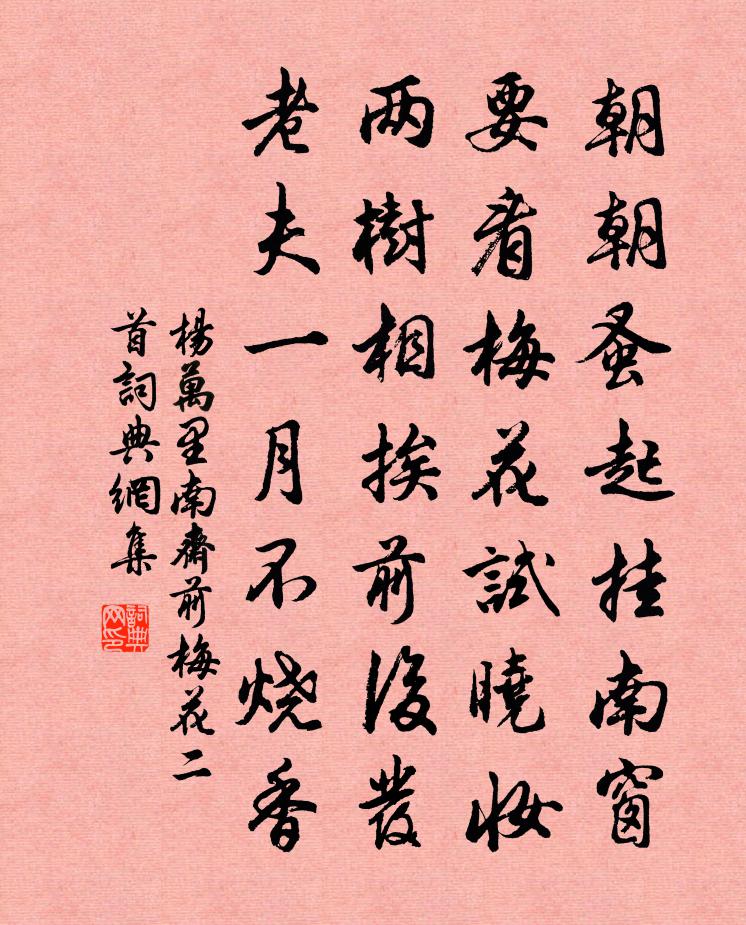 朝朝蚤起挂南窗
要看梅花試曉妝
两樹相挨前後發
老夫一月不烧香
楊萬里南齋前梅花二
首詞典網集
詞典
网印